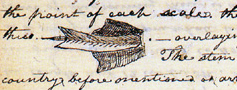 the point of each scale. th
thus — — overlaying
The stem
country before mentioned as ar